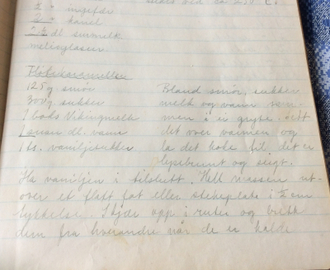 2 " ingefær
" kanel
dl surmelk
melisglasur
Fløtekarameller
125 g smør
300 g sukker
1 boks Vikingmelk
1 dl. vann
1 ts. vaniljesukker
Bland smør, sukker
melk og vann sam-
men i ei gryte. Sett
det over varmen og
la det koke til det er
lysebrunt og seigt.
Ha vaniljen i tilslutt. Hell massen ut-
over et flatt fat eller stekeplate i 1 cm
tykkelse. Skjær opp i ruter og brekk
dem fra hverandre når de er kalde